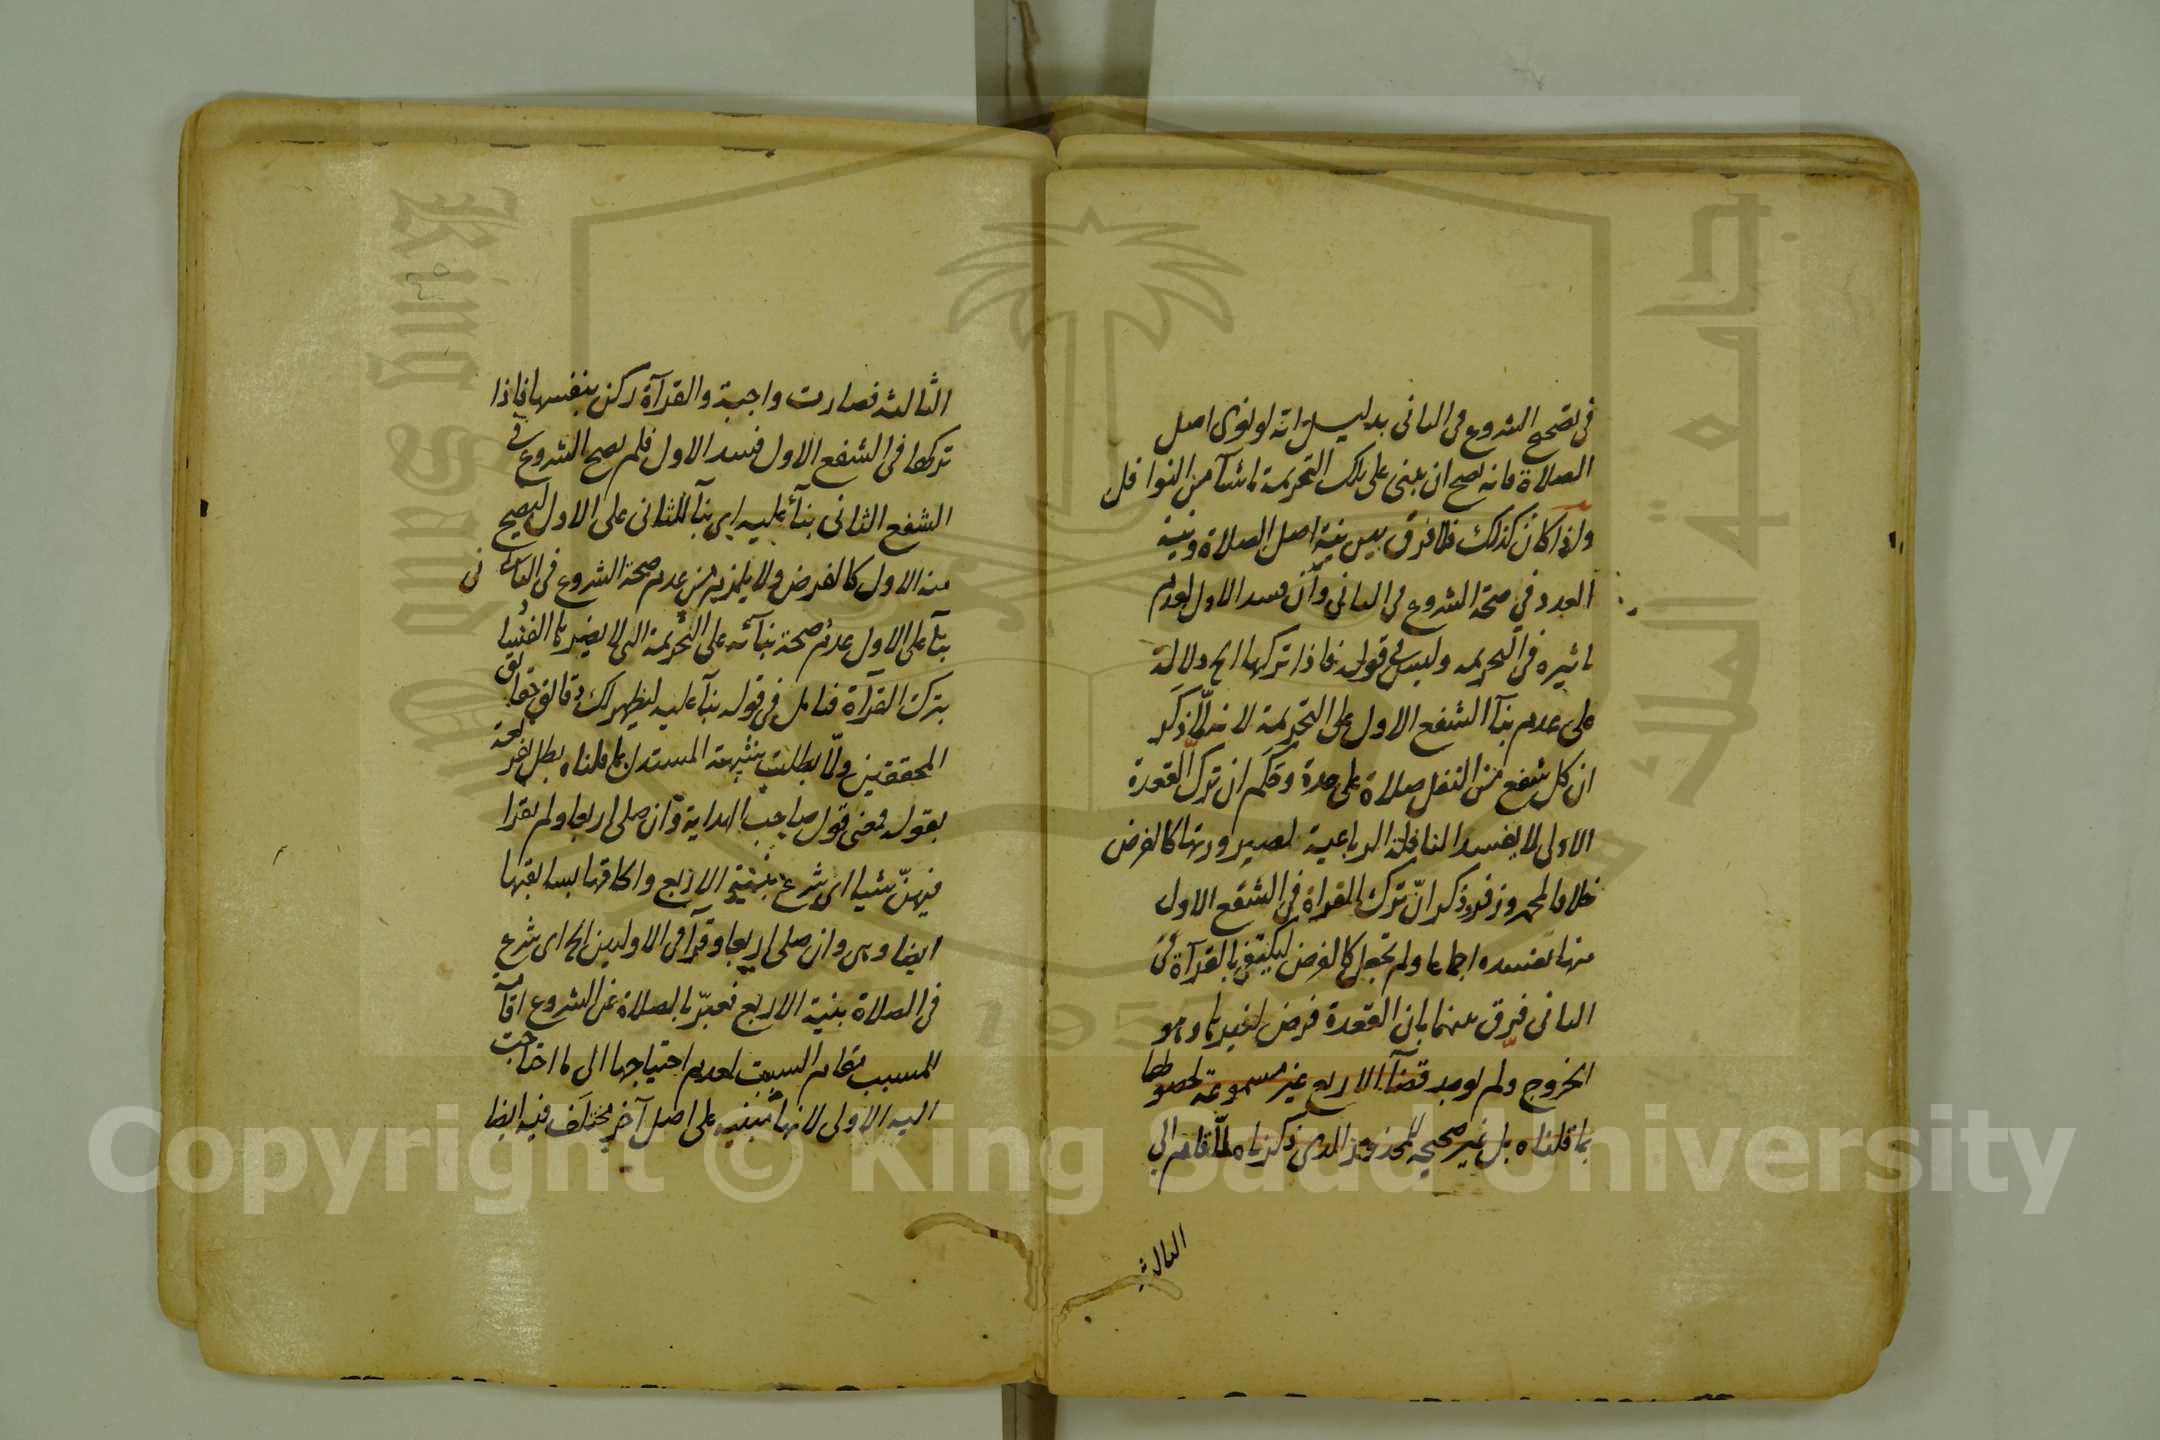 في تصحيح الشروع في الثاني بدليل انه لو نوى اصل
الصلاة فانه يصح ان يبنى على تلك التحريمة ما شآ من النوافل
واذا كان كذلك فلا فرق بين نية اصل الصلاة ونية
العدد في صحة الشروع في الثاني وان فسد الاول لعدم
تاثيره في التحريمه وليس في قوله فاذا تركها الخ دلالة
على عدم بنآ الشفع الاول على التحريمة لانه لمّا ذكر
ان كل شفع من النفل صلاة على حدة وحكم ان ترك القعدة
الاولى لا يفسد النافلة الرباعية لصيرورتها كالفرض
خلافا لمحمد وزفر وذكر انّ ترك القراة في الشفع الاول
منها تفسده اجماعا ولم تجعل كالفرض ليكتفى بالقرآة في
الثاني فرق بينهما بان القعدة فرض لغيرها وهو
الخروج ولم يوجد قضآ الاربع غير مسموعة لحصولها
بما قلناه بل غير صحيحه للمحذور الذى ذكرناه فلمّا قام الى
الثالثه
الثالثه فصارت واجبة والقرآة ركن بنفسها فاذا
تركها فى الشفع الاول فسد الاول فلم يصح الشروع في
الشفع الثانى بنآء عليه اى بنآ للثانى على الاول ليصح
منه الاول كالفرض ولا يلزم من عدم صحة الشروع في الثانى
بنآ على الاول عدم صحة بنآئه على التحريمة التى لا يضيرها
بترك القرآة فتامل فى قوله بنآ عليه ليظهر لك دقائق
المحققين ولمّا بطلت شبهة المستدل بما قلناه بطل
بقوله فمعنى قول صاحب الهداية وان صلى اربعا ولم يقرا
فيهنّ شيا اى شرع بنية الاربع والحاقها بسابقتها
ايضا وهى وان صلى اربعا وقرآ فى الاوليين الخ اى شرع
فى الصلاة بنية الاربع فعبّر بالصلاة عن الشروع اقامة
للمسبب مقام السبب لعدم احتياجها الى ما احتاجت
اليه الاولى لانها مبنيه على اصل آخر مختلف فيه ايضا
King Saud University
جامعة الملك سعود
1957
Copyright © King Saud University